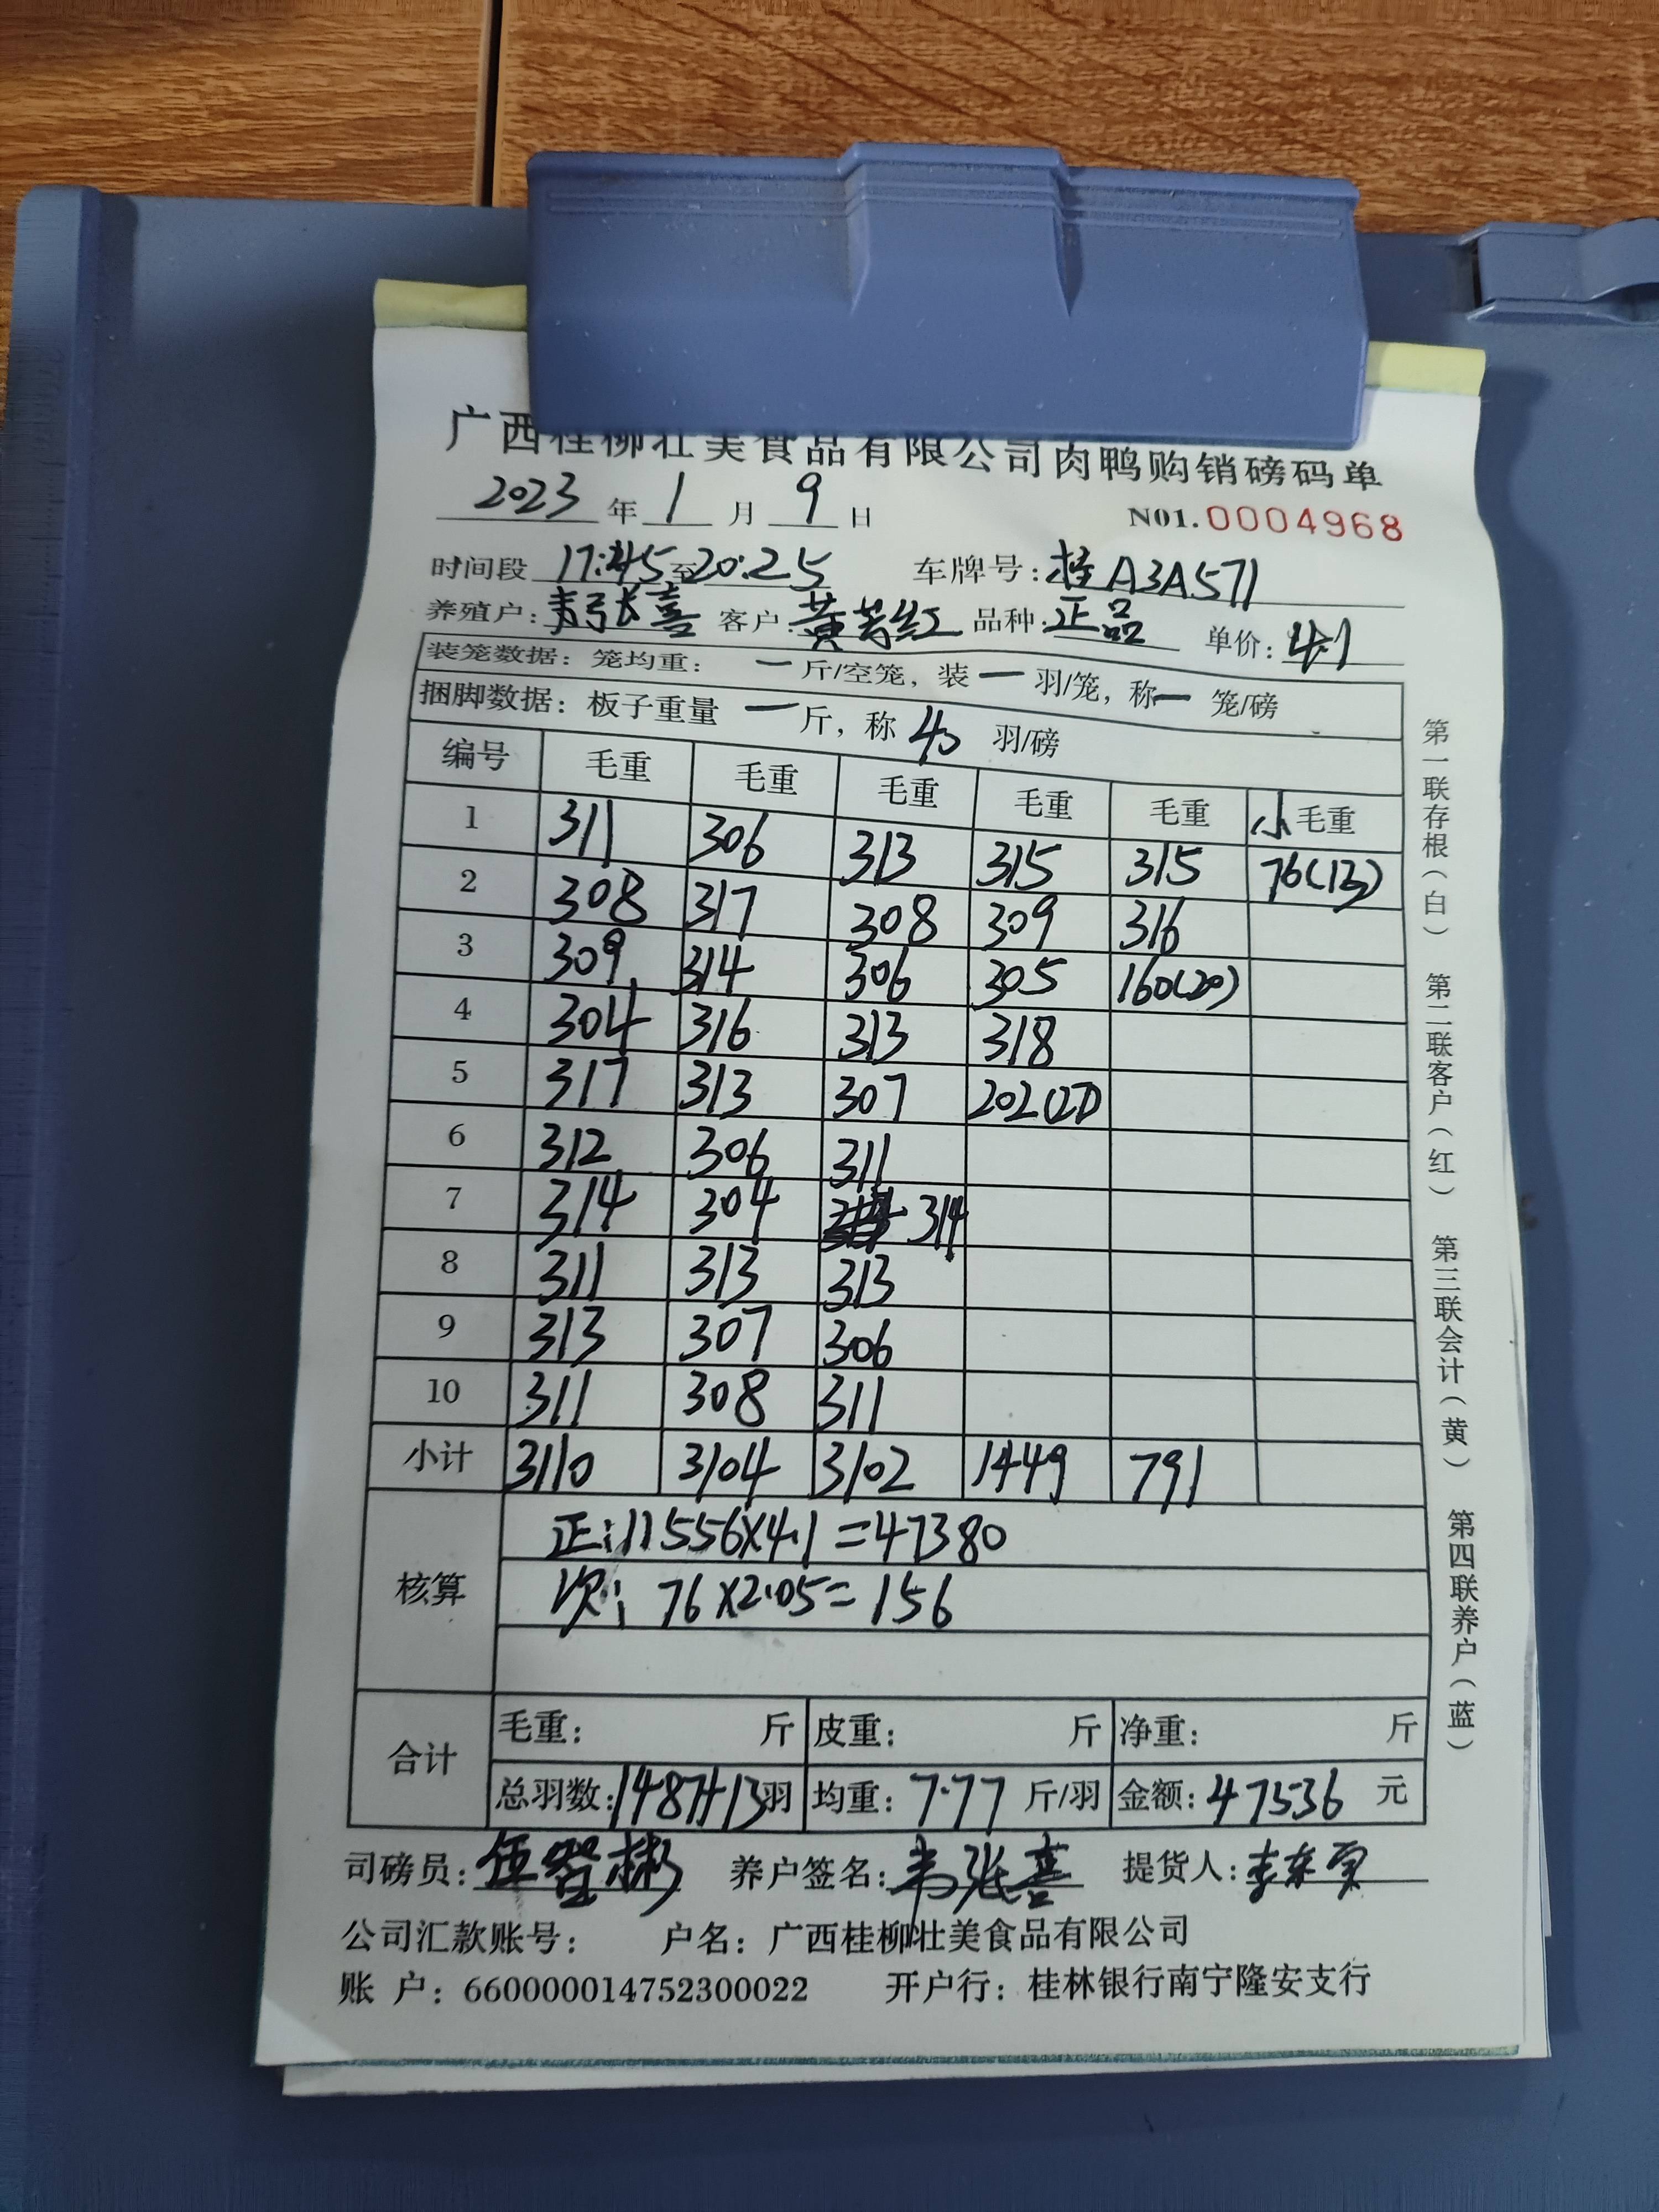 广西桂柳壮美食品有限公司肉鸭购销磅码单
2023 年 1 月 9 日 N01. 0004968
时间段 17:45 至 20:25 车牌号: 桂A3A571
养殖户: 韦张喜 客户: 黄 红 品种: 正品 单价: 4.1
装笼数据: 笼均重: 一 斤/空笼, 装 一 羽/笼, 称 一 笼/磅
捆脚数据: 板子重量 一 斤, 称 40 羽/磅
编号 毛重 毛重 毛重 毛重 毛重 小毛重
1 311 306 313 315 315 76(13)
2 308 317 308 309 316
3 309 314 306 305 160(20)
4 304 316 313 318
5 317 313 307 202(27)
6 312 306 311
7 314 304 314
8 311 313 313
9 313 307 306
10 311 308 311
小计 3110 3104 3102 1449 791
核算
正: 11556×4.1=47380
次: 76×2.05=156
合计
毛重: 斤 皮重: 斤 净重: 斤
总羽数: 1487+13羽 均重: 7.77 斤/羽 金额: 47536 元
司磅员: 伍 彬 养户签名: 韦张喜 提货人:
公司汇款账号: 户名: 广西桂柳壮美食品有限公司
账 户: 660000014752300022 开户行: 桂林银行南宁隆安支行
第一联存根(白) 第二联客户(红) 第三联会计(黄) 第四联养户(蓝)